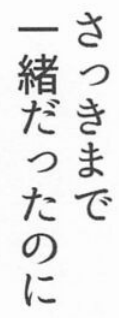 さっきまで
一緒だったのに